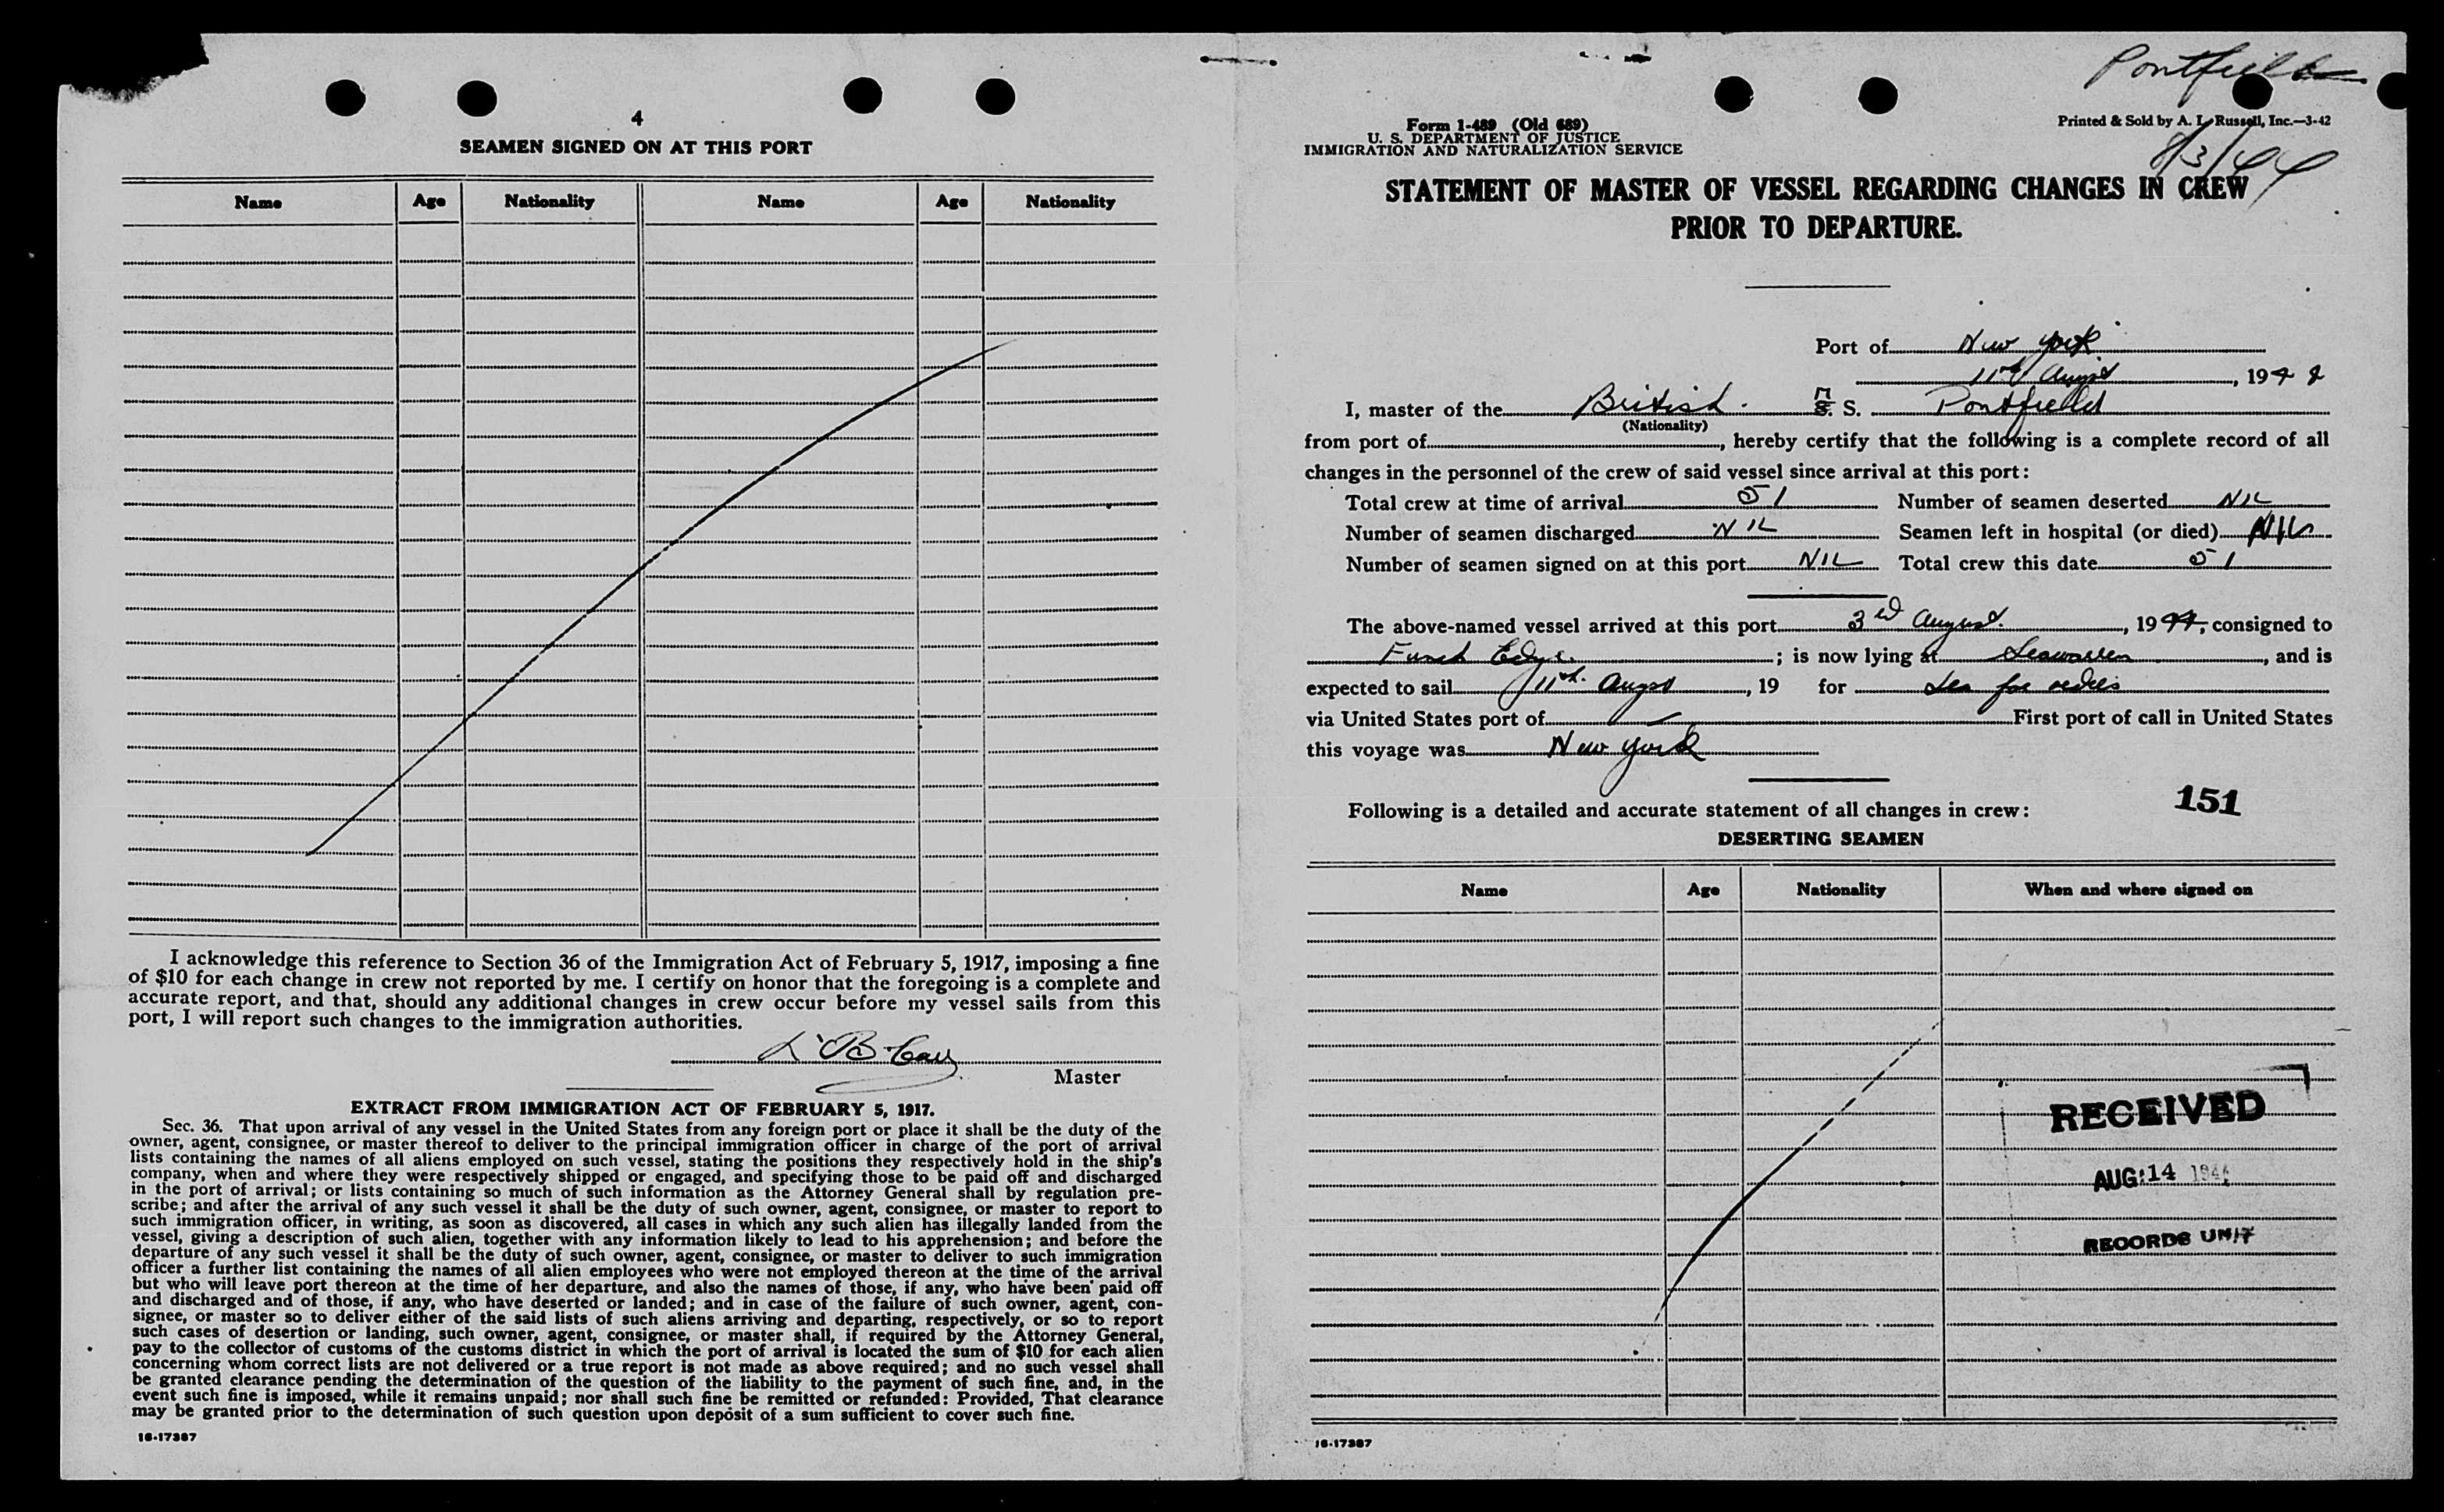 4
SEAMEN SIGNED ON AT THIS PORT
Name Age Nationality Name Age Nationality
I acknowledge this reference to Section 36 of the Immigration Act of February 5, 1917, imposing a fine
of $10 for each change in crew not reported by me. I certify on honor that the foregoing is a complete and
accurate report, and that, should any additional changes in crew occur before my vessel sails from this
port, I will report such changes to the immigration authorities.
Master
EXTRACT FROM IMMIGRATION ACT OF FEBRUARY 5, 1917.
Sec. 36. That upon arrival of any vessel in the United States from any foreign port or place it shall be the duty of the
owner, agent, consignee, or master thereof to deliver to the principal immigration officer in charge of the port of arrival
lists containing the names of all aliens employed on such vessel, stating the positions they respectively hold in the ship's
company, when and where they were respectively shipped or engaged, and specifying those to be paid off and discharged
in the port of arrival; or lists containing so much of such information as the Attorney General shall by regulation pre-
scribe; and after the arrival of any such vessel it shall be the duty of such owner, agent, consignee, or master to report to
such immigration officer, in writing, as soon as discovered, all cases in which any such alien has illegally landed from the
vessel, giving a description of such alien, together with any information likely to lead to his apprehension; and before the
departure of any such vessel it shall be the duty of such owner, agent, consignee, or master to deliver to such immigration
officer a further list containing the names of all alien employees who were not employed thereon at the time of the arrival
but who will leave port thereon at the time of her departure, and also the names of those, if any, who have been paid off
and discharged and of those, if any, who have deserted or landed; and in case of the failure of such owner, agent, con-
signee, or master so to deliver either of the said lists of such aliens arriving and departing, respectively, or so to report
such cases of desertion or landing, such owner, agent, consignee, or master shall, if required by the Attorney General,
pay to the collector of customs of the customs district in which the port of arrival is located the sum of $10 for each alien
concerning whom correct lists are not delivered or a true report is not made as above required; and no such vessel shall
be granted clearance pending the determination of the question of the liability to the payment of such fine, and, in the
event such fine is imposed, while it remains unpaid; nor shall such fine be remitted or refunded: Provided, That clearance
may be granted prior to the determination of such question upon deposit of a sum sufficient to cover such fine.
16-17387
Pontfield
Form I-489 (Old 689)
U. S. DEPARTMENT OF JUSTICE
IMMIGRATION AND NATURALIZATION SERVICE
Printed & Sold by A. L. Russell, Inc.—3-42
8/3/44
STATEMENT OF MASTER OF VESSEL REGARDING CHANGES IN CREW
PRIOR TO DEPARTURE.
Port of New York
11th August, 194
I, master of the British M. S. Pontfield
(Nationality)
from port of, hereby certify that the following is a complete record of all
changes in the personnel of the crew of said vessel since arrival at this port:
Total crew at time of arrival 51 Number of seamen deserted NIL
Number of seamen discharged NIL Seamen left in hospital (or died) NIL
Number of seamen signed on at this port NIL Total crew this date 51
The above-named vessel arrived at this port 3rd August, 1944, consigned to
Funch Edye; is now lying at Seawarren, and is
expected to sail 11th August, 19 for Sea for orders
via United States port of First port of call in United States
this voyage was New York
Following is a detailed and accurate statement of all changes in crew:
151
DESERTING SEAMEN
Name Age Nationality When and where signed on
RECEIVED
AUG 14 1944
RECORDS UNIT
16-17387